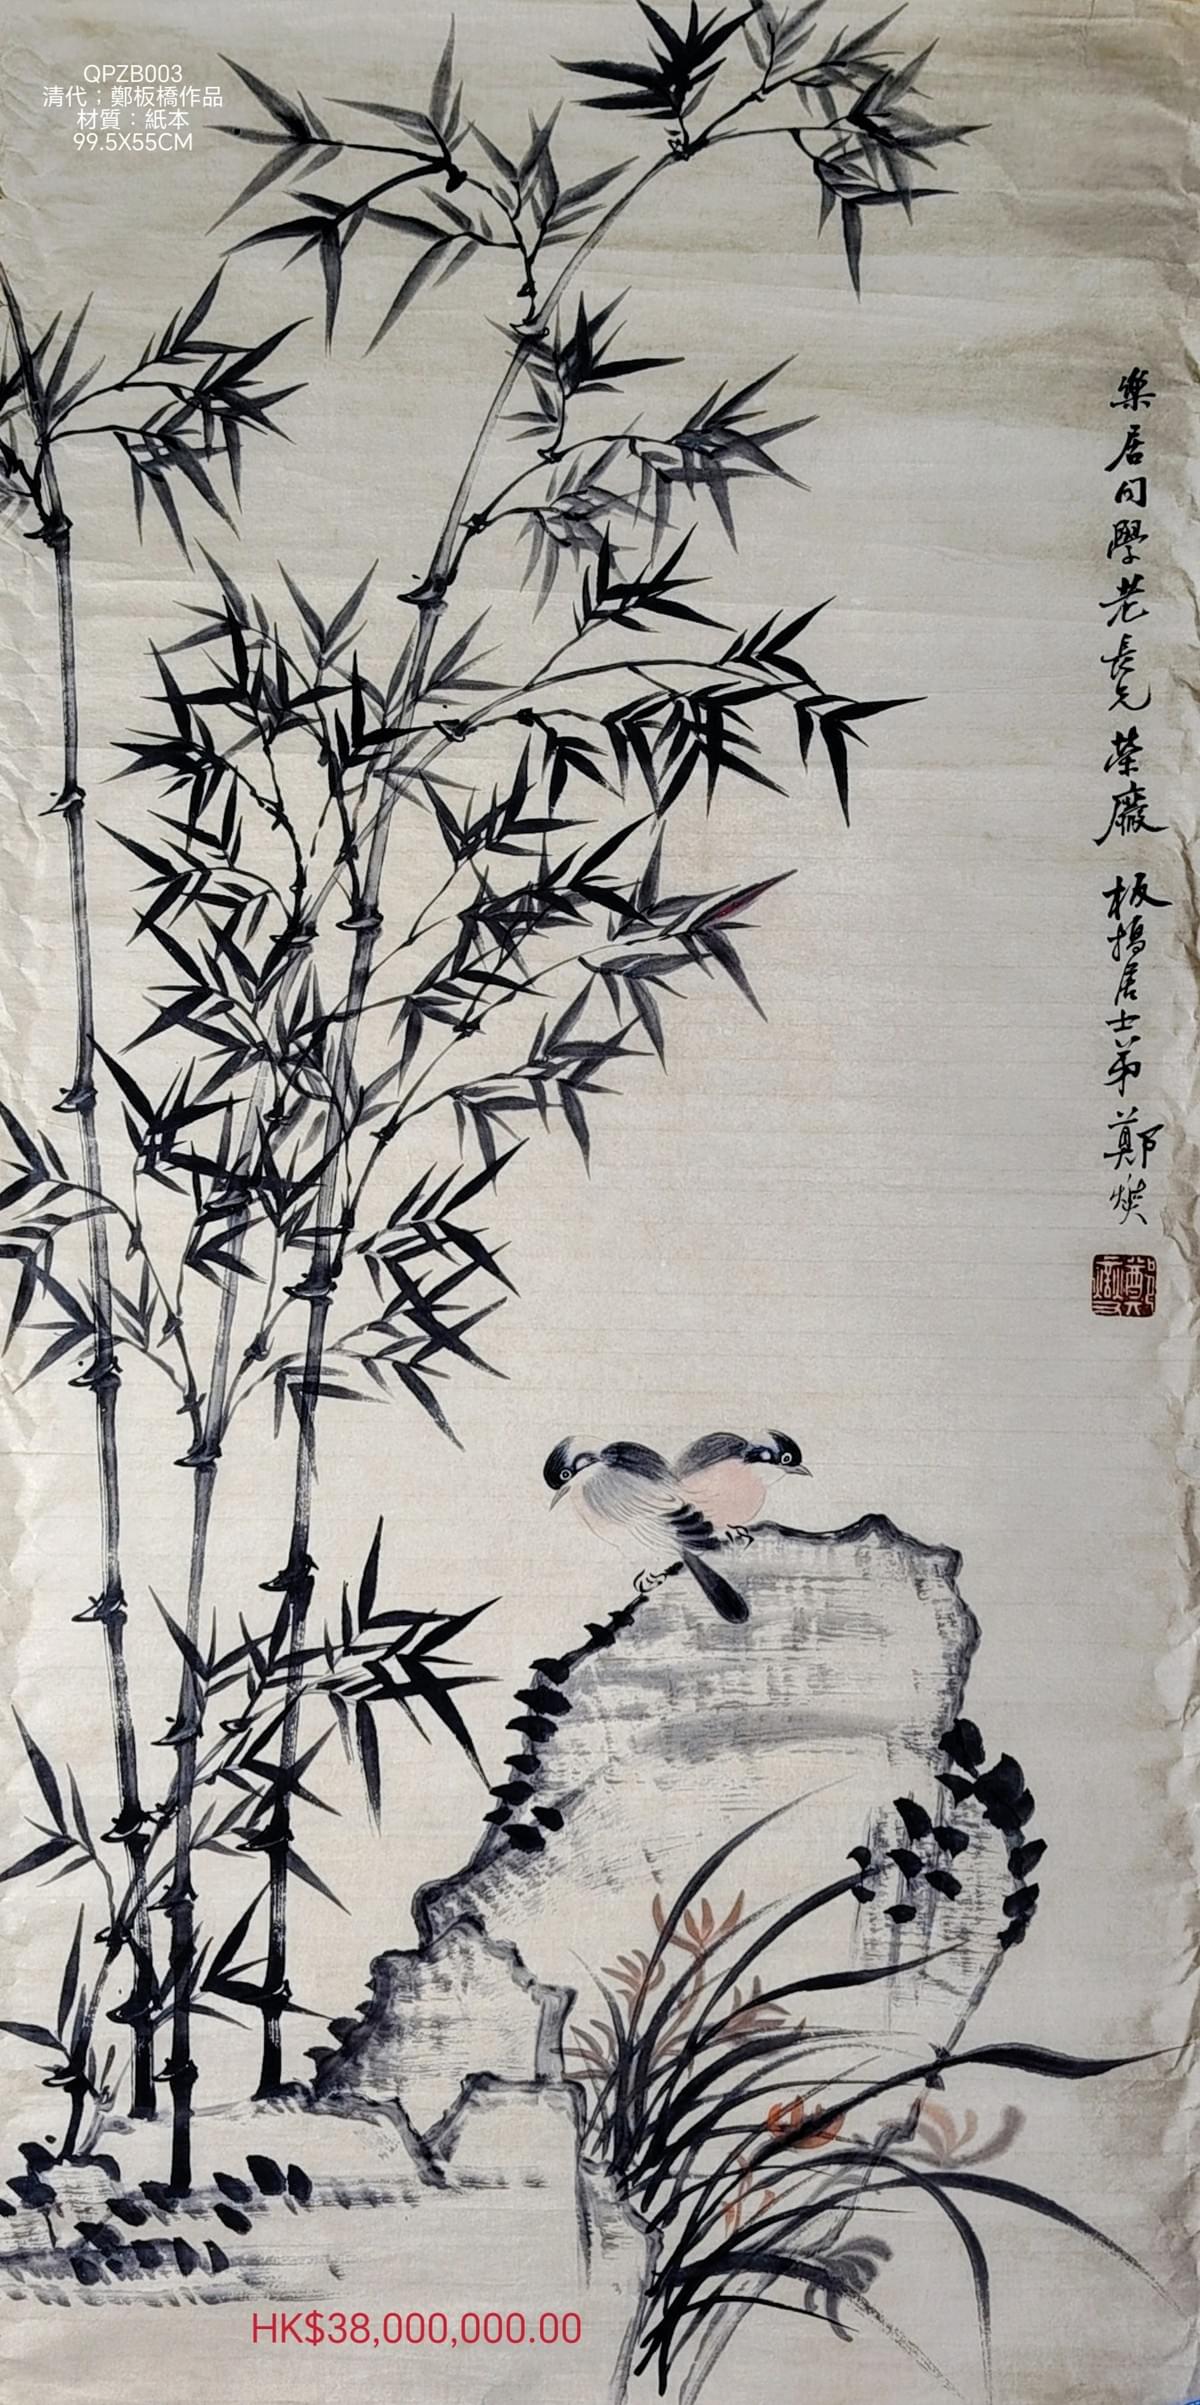 QPZB003
清代；鄭板橋作品
材質：紙本
99.5X55CM
樂居同學老長兄 荣廠 板橋居士弟鄭燮
HK$38,000,000.00